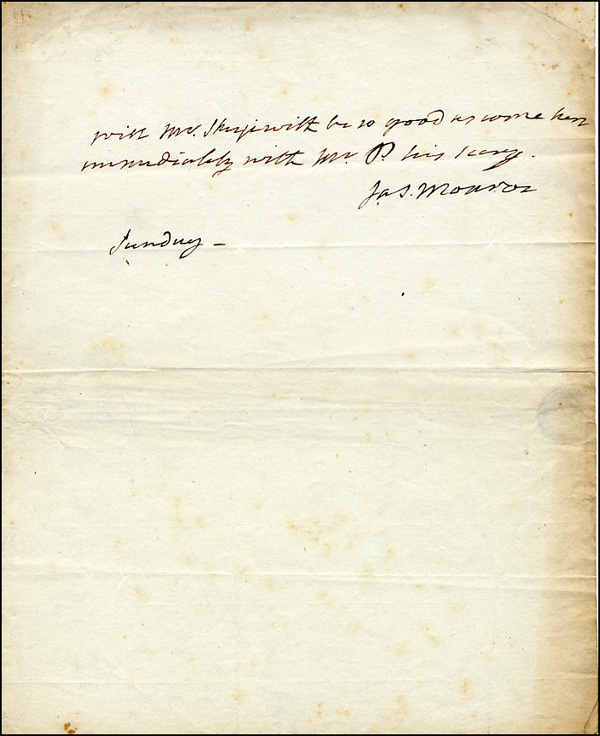 will Mr. Skipwith be so good as come here
immediately with Mr. P. his Secy.
Jas. Monroe
Sunday –